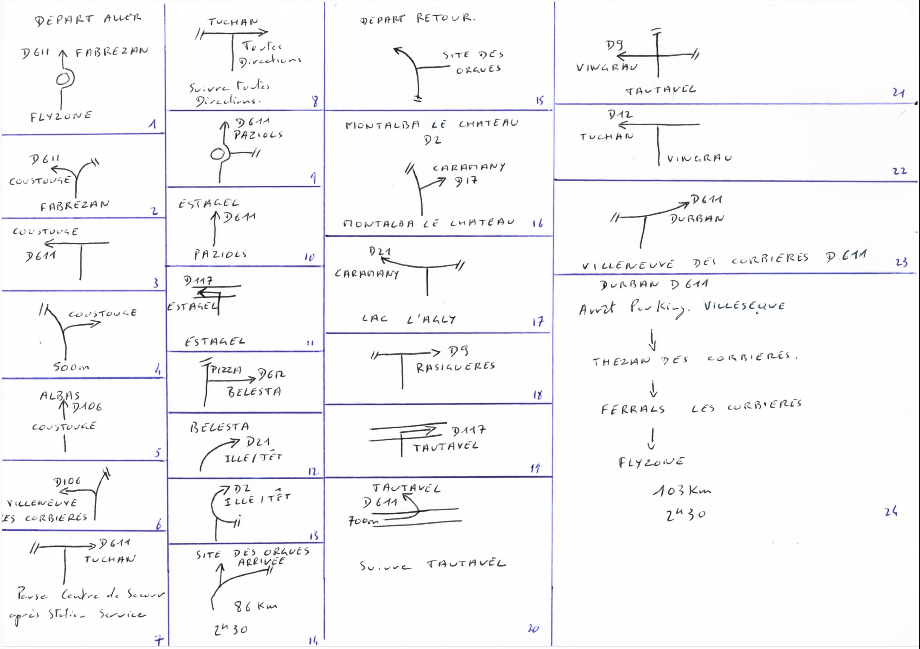 DEPART ALLER
D611 FABREZAN
FLYZONE
1
D611
COUSTOUGE
FABREZAN
2
COUSTOUGE
D611
3
COUSTOUGE
500m
4
ALBAS
D106
COUSTOUGE
5
D106
VILLENEUVE
ES CORBIERES
6
D611
TUCHAN
Pause Centre de Secour
après Station Service
7
TUCHAN
Toutes
Directions
Suivre Toutes
Directions.
8
D611
PAZIOLS
9
ESTAGEL
D611
PAZIOLS
10
D117
ESTAGEL
ESTAGEL
11
PIZZA D612
BELESTA
BELESTA
D21
ILLE/TÊT
12
D2
ILLE/TÊT
13
SITE DES ORGUES
ARRIVÉE
86 Km
2H30
14
DEPART RETOUR.
SITE DES
ORGUES
15
MONTALBA LE CHATEAU
D2
CARAMANY
D17
MONTALBA LE CHATEAU 16
D21
CARAMANY
LAC L'AGLY
17
D9
RASIGUERES
18
D117
TAUTAVEL
19
TAUTAVEL
D611
700m
Suivre TAUTAVEL
20
D9
VINGRAU
TAUTAVEL
21
D12
TUCHAN
VINGRAU
22
D611
DURBAN
VILLENEUVE DES CORBIERES D611
23
DURBAN D611
Arrêt Parking. VILLESEQUE
THEZAN DES CORBIERES.
FERRALS LES CORBIERES
FLYZONE
103Km
2H30
24